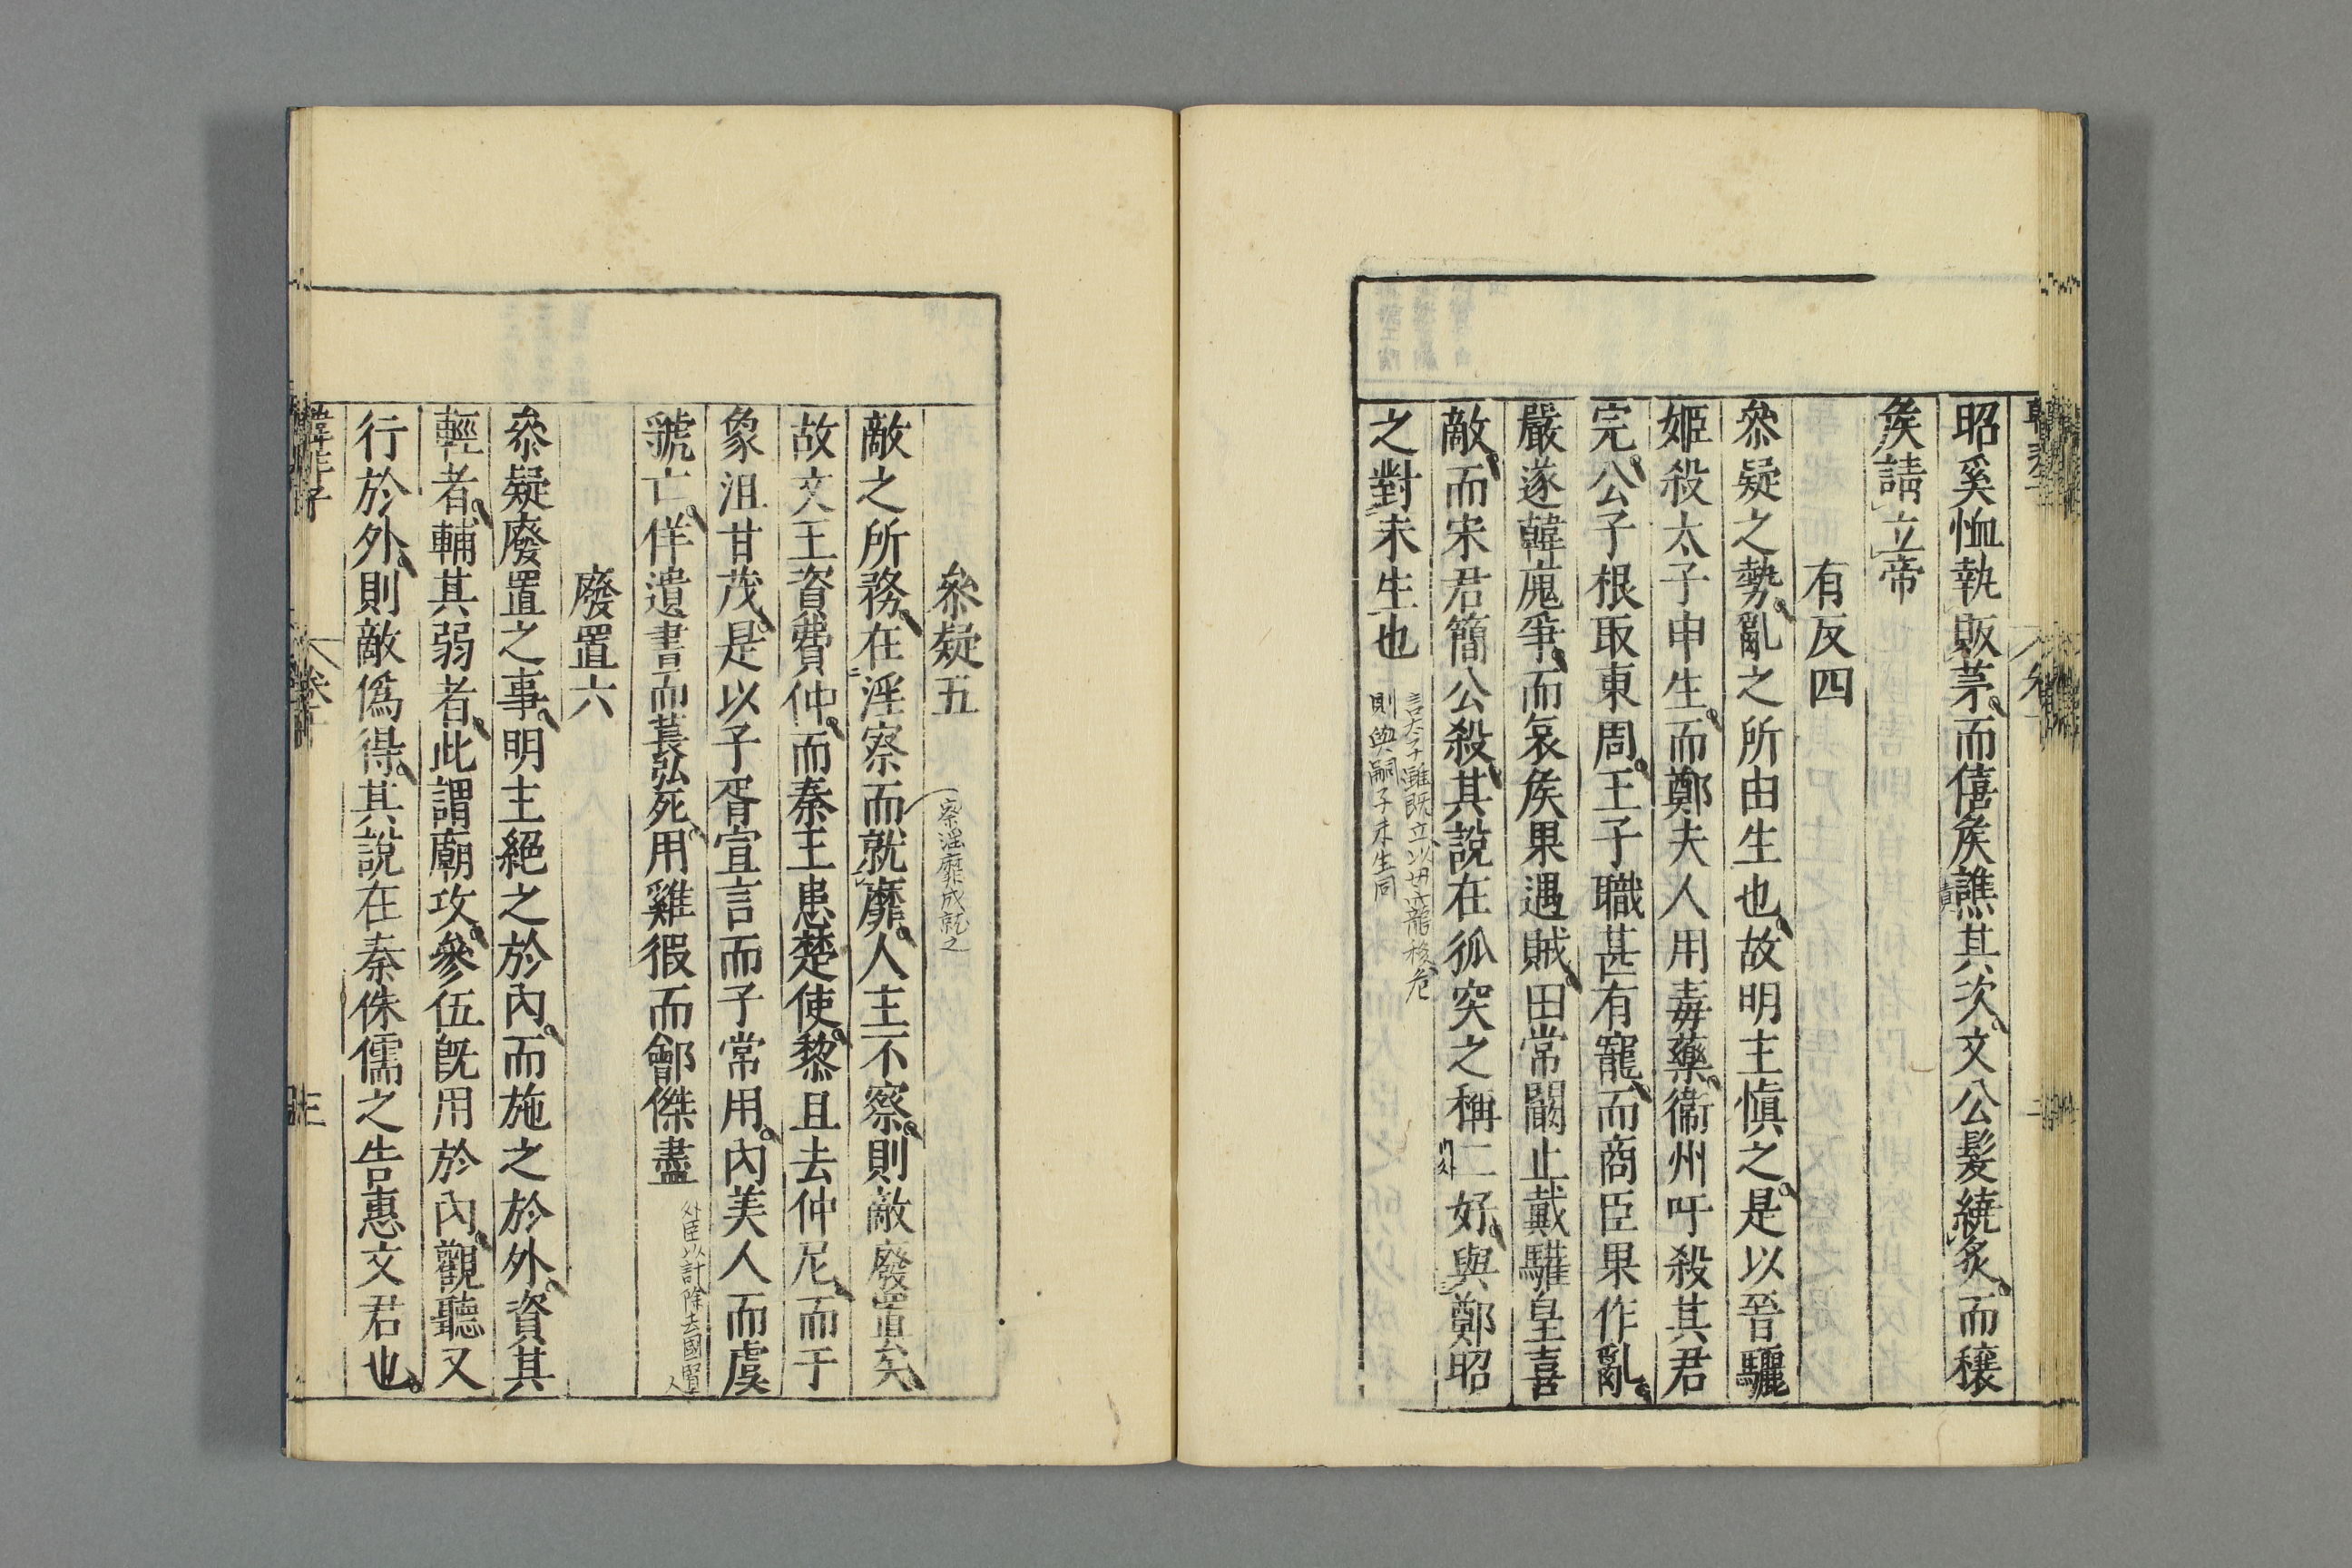 昭奚恤執販茅而僖矦譙其次文公髮繞炙而穰
矦請立帝
有反四
叅疑之勢亂之所由生也故明主愼之是以晉驪
姬殺太子申生而鄭夫人用毒藥衞州吁殺其君
完公子根取東周王子職甚有寵而商臣果作亂
嚴遂韓廆爭而哀矦果遇賊田常闞止戴驩皇喜
敵而宋君簡公殺其說在狐突之稱二好與鄭昭
之對未生也
則與嗣子未生同
叅疑五
察淫靡成就之
敵之所務在淫察而就靡人主不察則敵廢置矣
故文王資費仲而秦王患楚使黎且去仲尼而干
象沮甘茂是以子胥宣言而子常用內美人而虞
虢亡佯遺書而萇弘死用雞猳而鄶傑盡
外臣以計除去國賢人
廢置六
叅疑廢置之事明主絕之於內而施之於外資其
輕者輔其弱者此謂廟攻參伍旣用於內觀聽又
行於外則敵僞得其說在秦侏儒之告惠文君也
韓非子